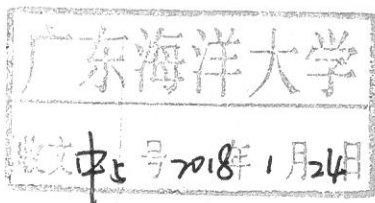 广东海洋大学
收文中5号2018年1月24日